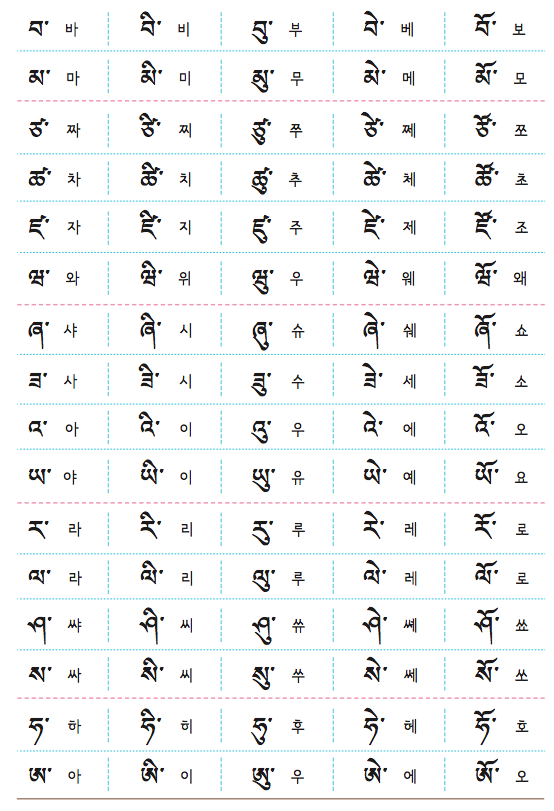 བ་ 바 བི་ 비 བུ་ 부 བེ་ 베 བོ་ 보
མ་ 마 མི་ 미 མུ་ 무 མེ་ 메 མོ་ 모
ཙ་ 짜 ཙི་ 찌 ཙུ་ 쭈 ཙེ་ 쩨 ཙོ་ 쪼
ཚ་ 차 ཚི་ 치 ཚུ་ 추 ཚེ་ 체 ཚོ་ 초
ཛ་ 자 ཛི་ 지 ཛུ་ 주 ཛེ་ 제 ཛོ་ 조
ཝ་ 와 ཝི་ 위 ཝུ་ 우 ཝེ་ 웨 ཝོ་ 왜
ཞ་ 샤 ཞི་ 시 ཞུ་ 슈 ཞེ་ 쉐 ཞོ་ 쇼
ཟ་ 사 ཟི་ 시 ཟུ་ 수 ཟེ་ 세 ཟོ་ 소
འ་ 아 འི་ 이 འུ་ 우 འེ་ 에 འོ་ 오
ཡ་ 야 ཡི་ 이 ཡུ་ 유 ཡེ་ 예 ཡོ་ 요
ར་ 라 རི་ 리 རུ་ 루 རེ་ 레 རོ་ 로
ལ་ 라 ལི་ 리 ལུ་ 루 ལེ་ 레 ལོ་ 로
ཤ་ 쌰 ཤི་ 씨 ཤུ་ 쓔 ཤེ་ 쎼 ཤོ་ 쑈
ས་ 싸 སི་ 씨 སུ་ 쑤 སེ་ 쎄 སོ་ 쏘
ཧ་ 하 ཧི་ 히 ཧུ་ 후 ཧེ་ 헤 ཧོ་ 호
ཨ་ 아 ཨི་ 이 ཨུ་ 우 ཨེ་ 에 ཨོ་ 오